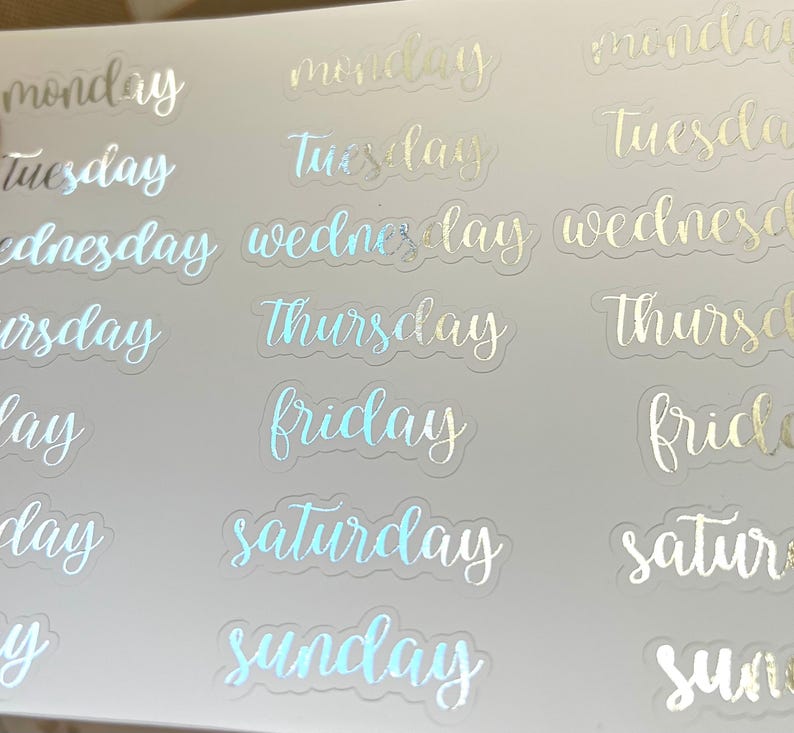 monday monday monday
Tuesday Tuesday Tuesda
wednesday wednesday wednesd
ursday Thursday Thursd
day friday frida
day saturday satur
y sunday sun